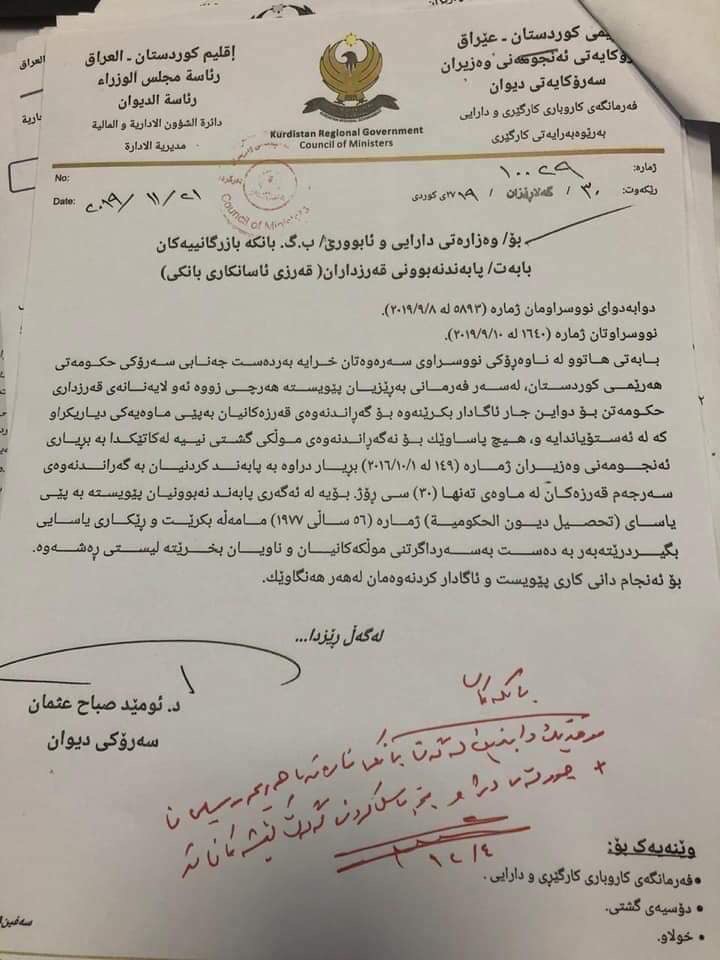 إقليم كوردستان - العراق
رئاسة مجلس الوزراء
رئاسة الديوان
دائرة الشؤون الادارية و المالية
مديرية الادارة
Kurdistan Regional Government
Council of Ministers
كوردستان - عێراق
ئەنجومەنی وەزیران
سەرۆکایەتی دیوان
فەرمانگەی کاروباری کارگێڕی و دارایی
بەڕێوەبەرایەتی کارگێڕی
No:
Date: ٢٠١٩/ ١١/ ٢١
Council of Ministers
ژمارە: ١٠٠٢٩
ڕێکەوت: ٣٠ / گەڵاڕێزان / ٢٧١٩ی کوردی
بۆ/ وەزارەتی دارایی و ئابووری/ ب.گ. بانکە بازرگانییەکان
بابەت/ پابەندنەبوونی قەرزداران( قەرزی ئاسانکاری بانکی)
دوابەدوای نووسراومان ژمارە (٥٨٩٣ لە ٢٠١٩/٩/٨).
نووسراوتان ژمارە (١٦٤٠ لە ٢٠١٩/٩/١٠).
بابەتی هاتوو لە ناوەڕۆکی نووسراوی سەرەوەتان خرایە بەردەست جەنابی سەرۆکی حکومەتی
هەرێمی کوردستان، لەسەر فەرمانی بەڕێزیان پێویستە هەرچی زووە ئەو لایەنانەی قەرزداری
حکومەتن بۆ دواین جار ئاگادار بکرێنەوە بۆ گەڕاندنەوەی قەرزەکانیان بەپێی ماوەیەکی دیاریکراو
کە لە ئەستۆیاندایە و، هیچ پاساوێك بۆ نەگەڕاندنەوەی موڵکی گشتی نییە لەکاتێکدا بە بڕیاری
ئەنجومەنی وەزیران ژمارە (١٤٩ لە ٢٠١٦/١٠/١) بڕیار دراوە بە پابەند کردنیان بە گەڕاندنەوەی
سەرجەم قەرزەکان لە ماوەی تەنها (٣٠) سی ڕۆژ. بۆیە لە ئەگەری پابەند نەبوونیان پێویستە بە پێی
یاسای (تحصيل ديون الحكومية) ژمارە (٥٦ ساڵی ١٩٧٧) مامەڵە بکرێت و ڕێکاری یاسایی
بگیردرێتەبەر بە دەست بەسەرداگرتنی موڵکەکانیان و ناویان بخرێتە لیستی ڕەشەوە.
بۆ ئەنجام دانی کاری پێویست و ئاگادار کردنەوەمان لەهەر هەنگاوێك.
لەگەڵ ڕێزدا...
د. ئومێد صباح عثمان
سەرۆکی دیوان
بانکەکان
١٢/٤
وێنەیەک بۆ:
• فەرمانگەی کاروباری کارگێڕی و دارایی .
• دۆسیەی گشتی.
• خولاو.